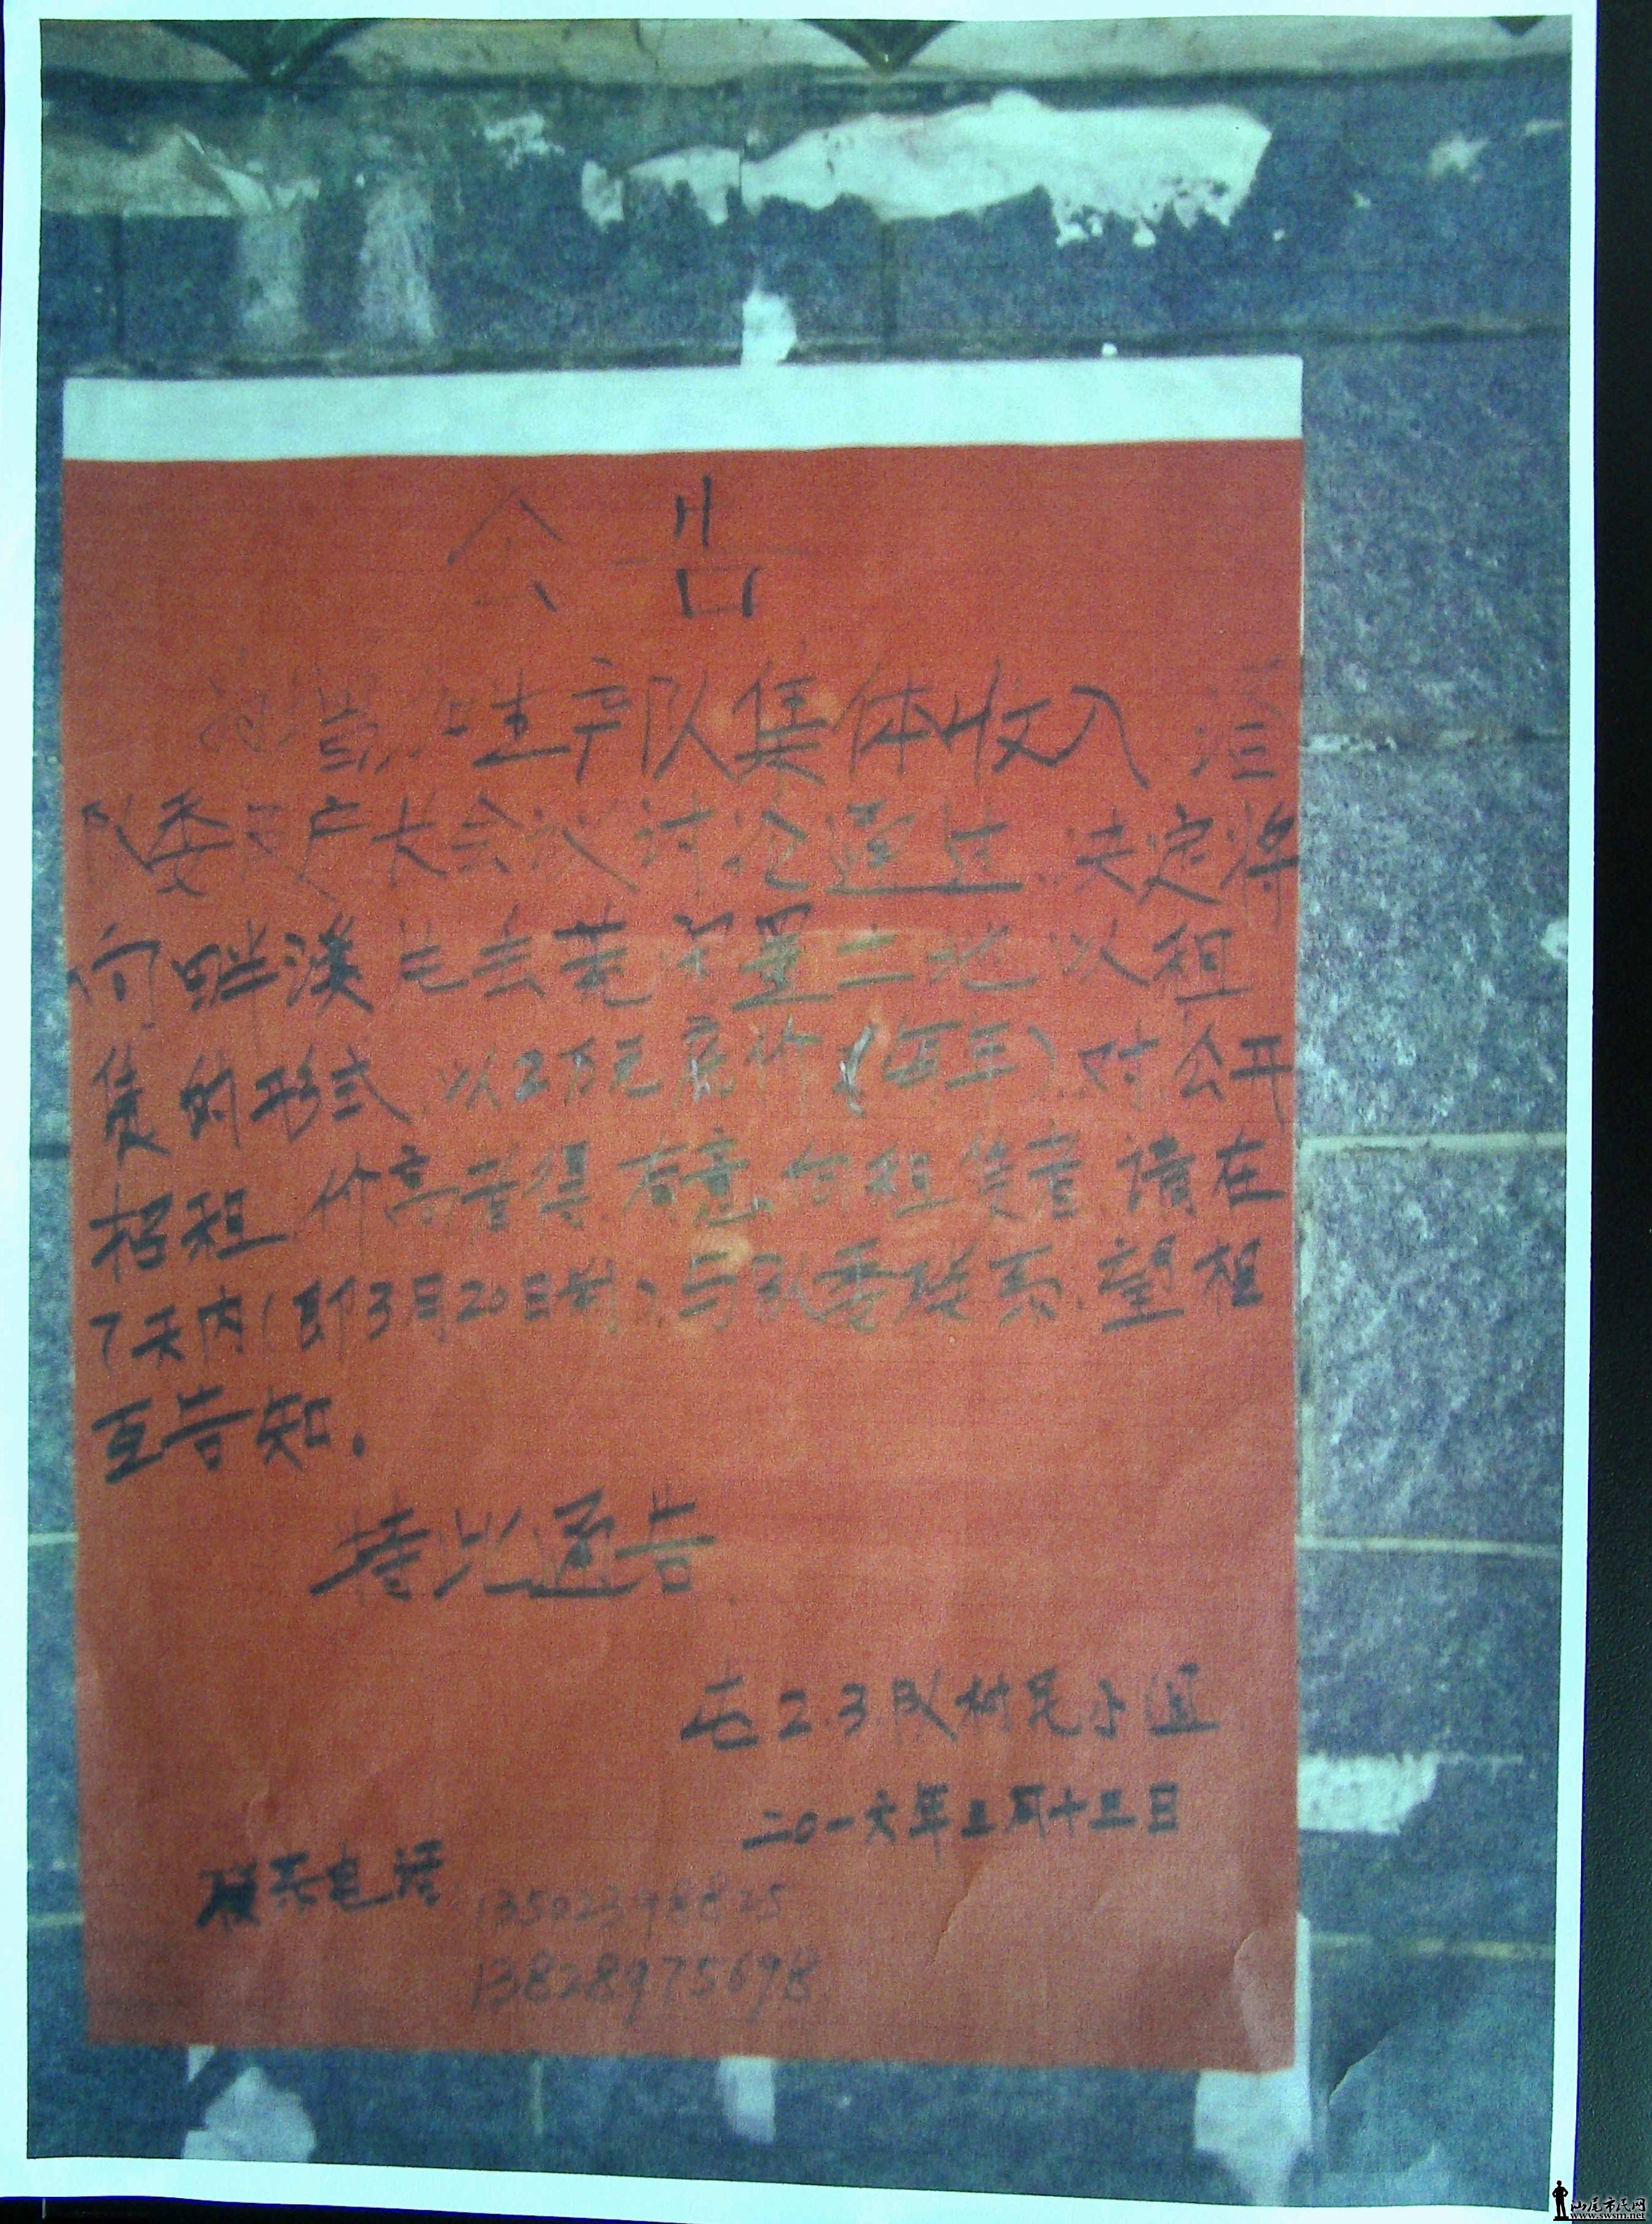 公告
生产队集体收入 经
队委 户大会议讨论通过 决定将
向畔溪 二地 以租
售的形式 以2万元底价(每年) 对公开
招租 价高者得 有意 租售者 请在
7天内(即3月20日前)与队委联系 望相
互告知。
特此通告
屯2.3队村民小组
二0一六年三月十三日
联系电话 13502398825
13828975698
汕尾市民网
www.swsm.net